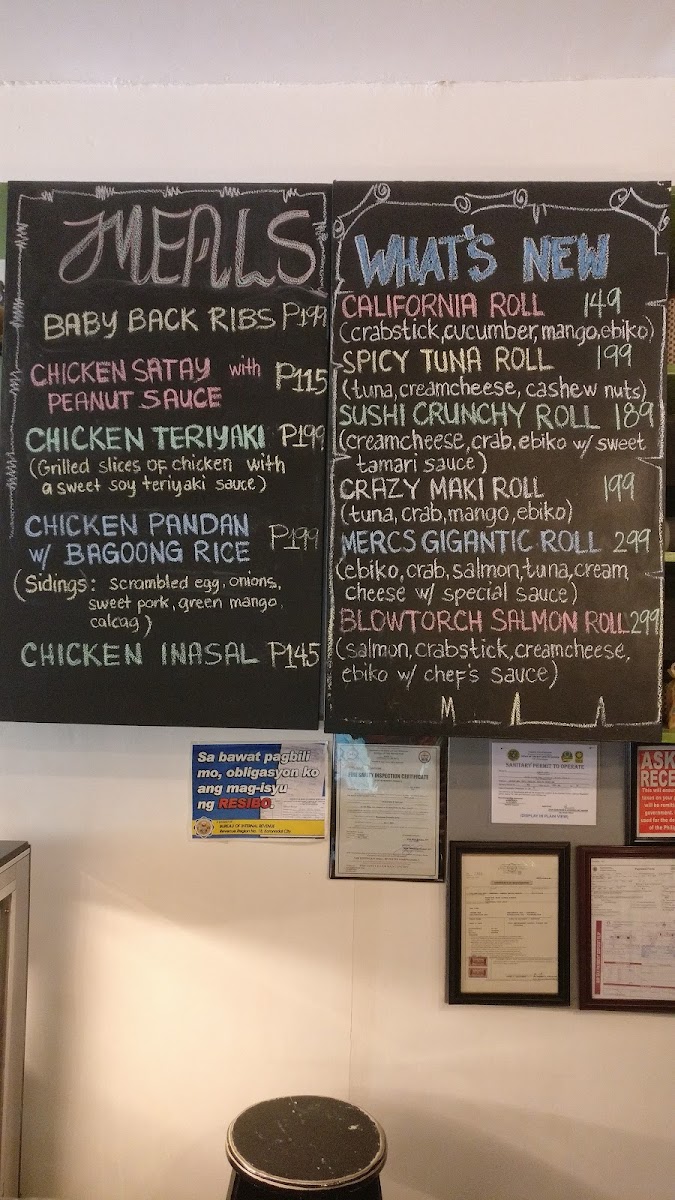 MEALS
BABY BACK RIBS P199
CHICKEN SATAY with P115
PEANUT SAUCE
CHICKEN TERIYAKI P199
(Grilled slices of chicken with
a sweet soy teriyaki sauce)
CHICKEN PANDAN
w/ BAGOONG RICE P199
(Sidings: scrambled egg, onions,
sweet pork, green mango,
calcag)
CHICKEN INASAL P145
WHAT'S NEW
CALIFORNIA ROLL 149
(crabstick, cucumber, mango, ebiko)
SPICY TUNA ROLL 199
(tuna, creamcheese, cashew nuts)
SUSHI CRUNCHY ROLL 189
(creamcheese, crab, ebiko w/ sweet
tamari sauce)
CRAZY MAKI ROLL 199
(tuna, crab, mango, ebiko)
MERCS GIGANTIC ROLL 299
(ebiko, crab, salmon, tuna, cream
cheese w/ special sauce)
BLOWTORCH SALMON ROLL 299
(salmon, crabstick, creamcheese,
ebiko w/ chef's sauce)
Sa bawat pagbili
mo, obligasyon ko
ang mag-isyu
ng RESIBO.
BUREAU OF INTERNAL REVENUE
FIRE SAFETY INSPECTION CERTIFICATE
SANITARY PERMIT TO OPERATE
DISPLAY IN PLAIN VIEW
ASK
RECE